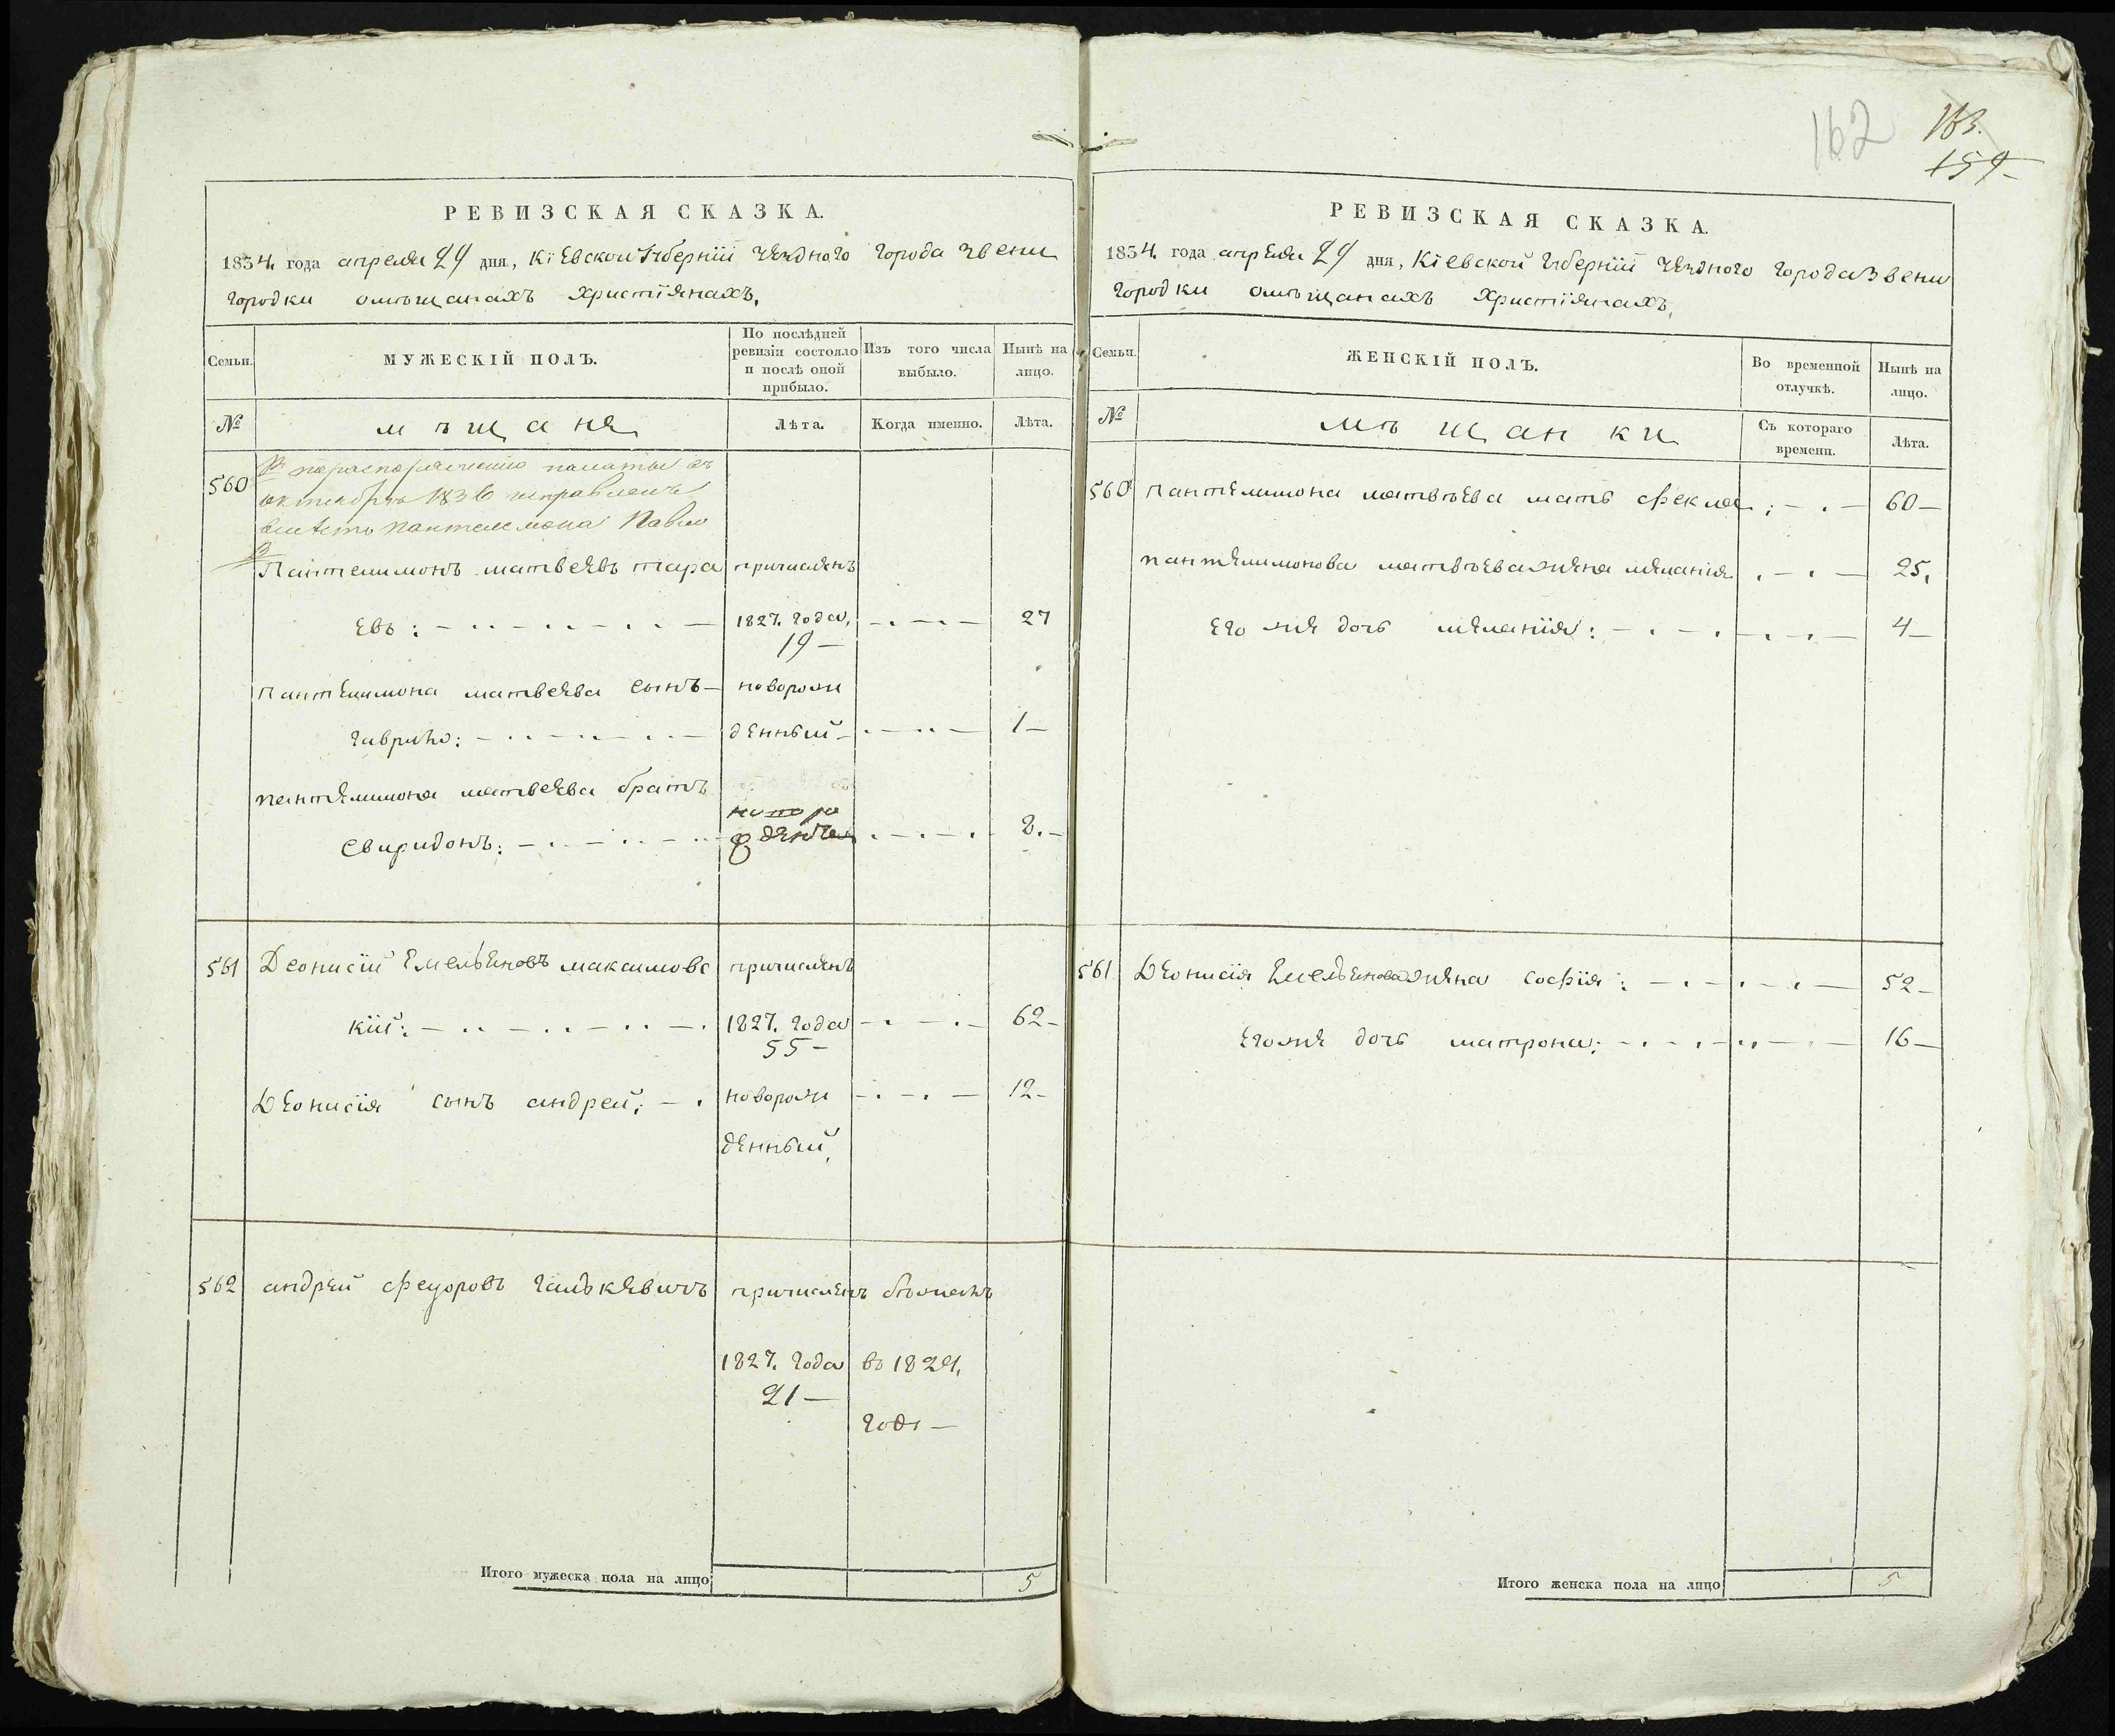 РЕВИЗСКАЯ СКАЗКА.
1834. года апреля 24 дня, Кіевской Губерніи Уезднаго города Звени
городки о мѣщанахъ Христіянахъ,
Семьи.
МУЖЕСКІЙ ПОЛЪ.
По послѣдней ревизіи состояло и послѣ оной прибыло.
Изъ того числа выбыло.
Нынѣ на лицо.
№
мѣщане
Лѣта.
Когда именно.
Лѣта.
560
по распоряжению палаты
октября 1836 исправлено
вместо Пантелемона Павло
Пантелимонъ матвеевъ тара причисленъ
евъ: 1827. года, 27
19
Пантелимона матвеева сынъ новорож
гаврило: денный 1
пантелимона матвеева братъ
Свиридонъ: 8 8.
561 Деонисій Емельяновъ максимовс причисленъ
кій: 1827. года 62
55
Деонисія сынъ андрей; новорож 12
денный,
562 андрей Феодоровъ галькевичъ причисленъ
1827. года въ 1829,
21
годе
Итого мужеска пола на лицо 5
162
163.
159
РЕВИЗСКАЯ СКАЗКА.
1834. года апреля 24 дня, Кіевской Губерніи Уезднаго города Звени
городки о мѣщанахъ Христіянахъ,
Семьи.
ЖЕНСКІЙ ПОЛЪ.
Во временной отлучкѣ.
Нынѣ на лицо.
№
мѣщанки
Съ котораго времени.
Лѣта.
560 Пантелимона матвѣева мать Фекла; 60
пантелимонова матвѣева жена меланія 25,
его же дочь меланія: 4
561 Деонисія Емельянова жена софія: 52
его же дочь матрона; 16
Итого женска пола на лицо 5